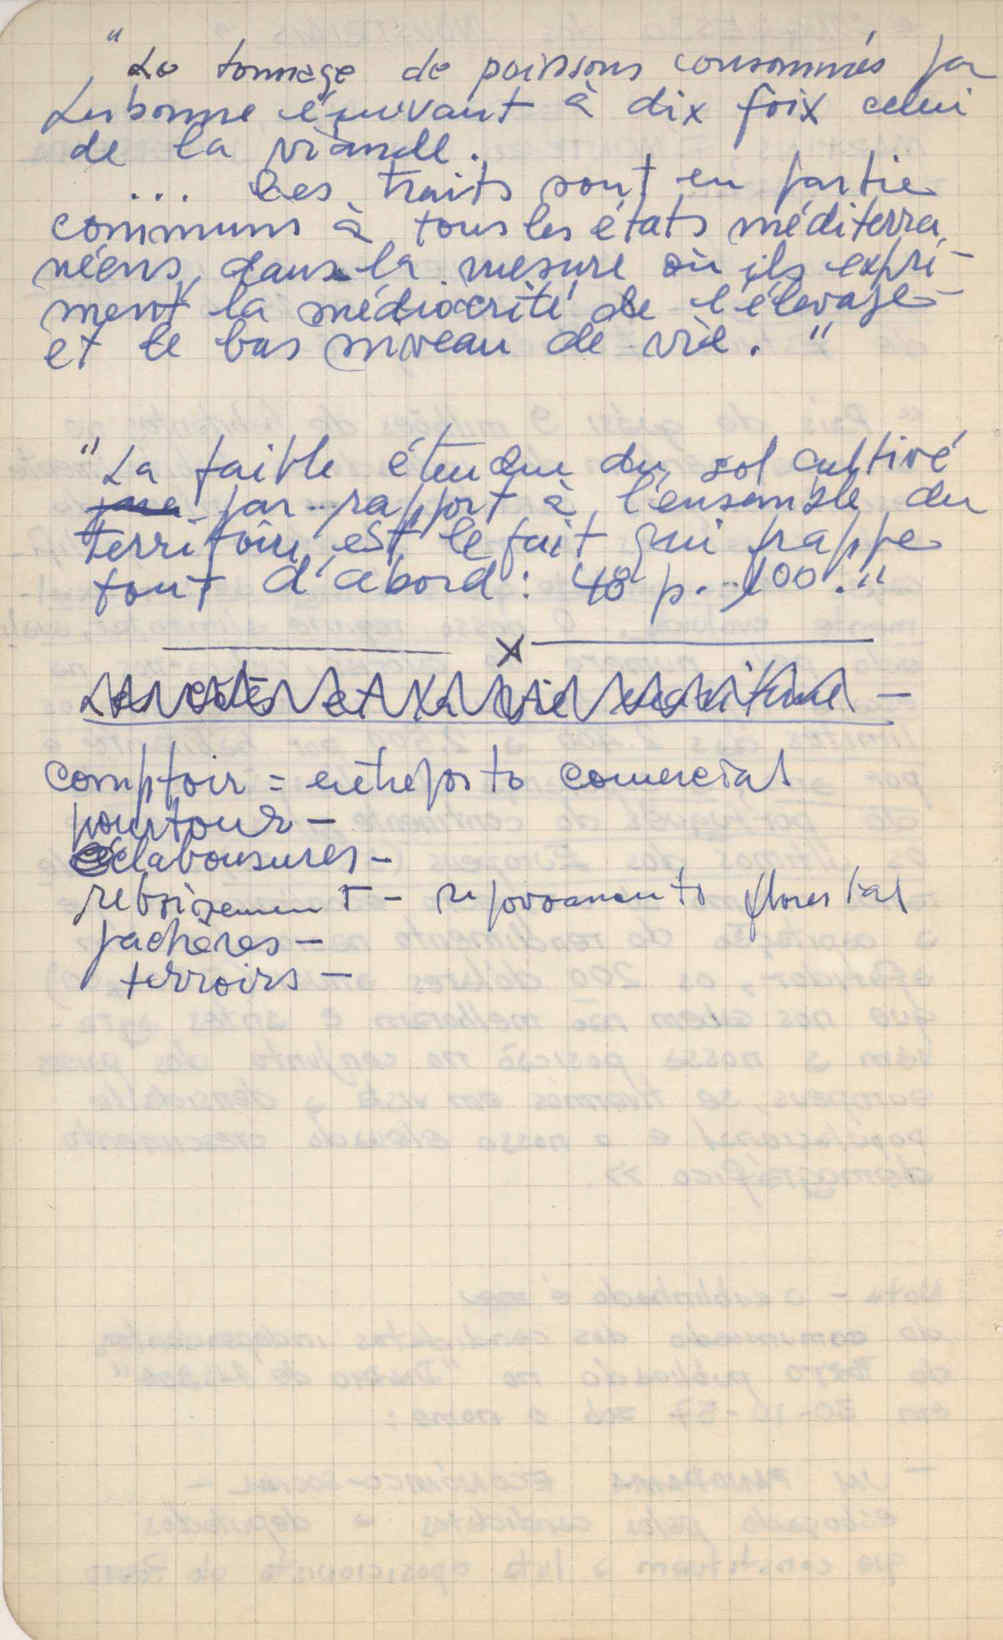 "Le tonnage de poissons consommés par
Lisbonne équivaut à dix foix celui
de la viande.
... Ces traits sont en partie
communs à tous les états méditerra
néens, dans la mesure où ils expri-
ment la médiocrité de l'élevage
et le bas niveau de vie."
"La faible étendue du sol cultivé
par rapport à l'ensemble du
territoire est le fait qui frappe
tout d'abord: 48 p. 100."
x
Les côtes et la vie maritime -
comptoir = entreposto comercial
pourtour -
éclabousures -
reboisement - repovoamento florestal
jachères -
terroirs -